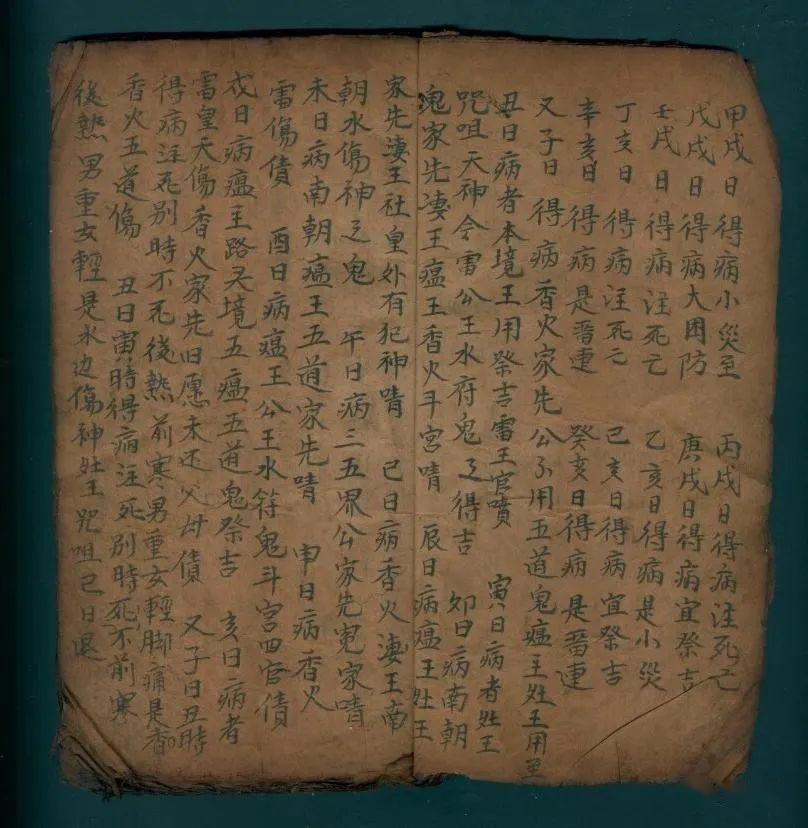 甲戌日得病小災至 丙戌日得病注死亡
戊戌日得病大困防 庚戌日得病宜祭吉
壬戌日得病注死亡 乙亥日得病是小災
丁亥日得病注死亡 己亥日得病宜祭吉
辛亥日得病是番連 癸亥日得病是番連
又子日得病香火家先公不用五道鬼瘟王社王用至
丑日病者本境王用祭吉雷王官噴 寅日病者社王
咒咀天神令雷公王水府鬼乏得吉 卯日病南朝
鬼家先淒王瘟王香火斗宮啨 辰日病瘟王社王
家先淒王社皇外有犯神啨 己日病香火淒王南
朝水傷神乏鬼 午日病三五界公家先鬼家啨
未日病南朝瘟王五道家先啨 申日病香火
雷傷債 酉日病瘟王公王水符鬼斗宮四官債
戌日病瘟王路天境五瘟五道鬼祭吉 亥日病者
雷皇天傷香火家先旧愿未还父母債 又子日丑時
得病注死別時不死後熱前寒男重女輕脚痛是香
香火五道傷 丑日寅時得病注死別時死不前寒
後熱男重女輕是水边傷神社王咒咀己日退